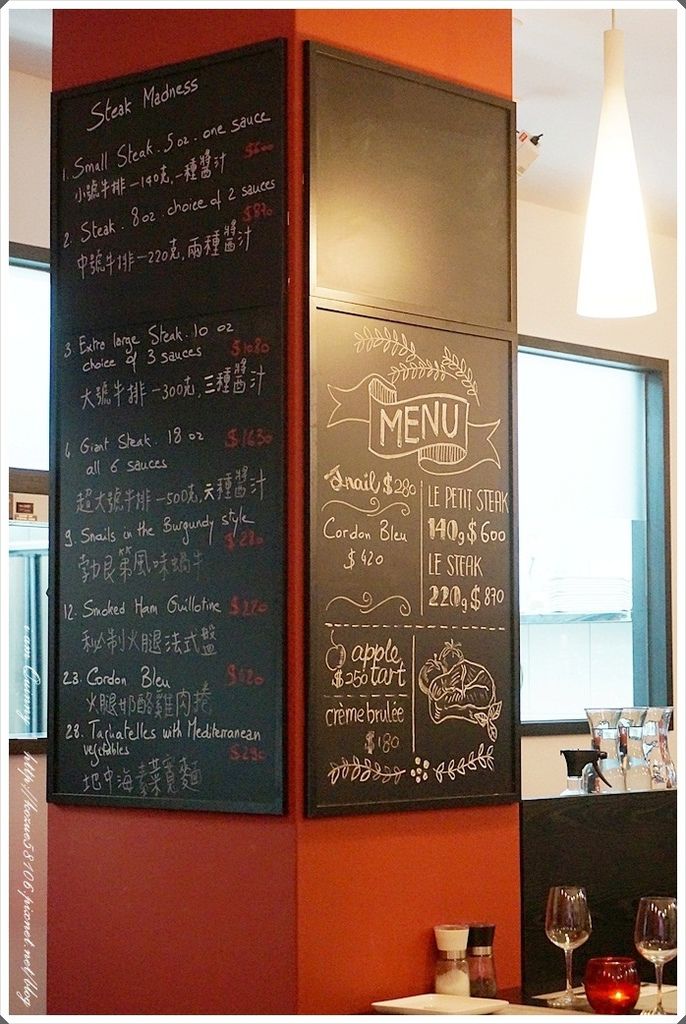 Steak Madness
1. Small Steak. 5 oz. one sauce
$600
小號牛排-140克,一種醬汁
2. Steak. 8 oz. choice of 2 sauces
$870
中號牛排-220克,兩種醬汁
3. Extra large Steak. 10 oz
choice of 3 sauces $1080
大號牛排-300克,三種醬汁
4. Giant Steak. 18 oz $1630
all 6 sauces
超大號牛排-500克,六種醬汁
9. Snails in the Burgundy style
$280
勃艮第風味蝸牛
12. Smoked Ham Guillotine $270
火腿法式盤
23. Cordon Bleu $420
火腿奶酪雞肉捲
28. Tagliatelles with Mediterranean
vegetables $290
地中海素菜寬麵
MENU
Snail $280
Cordon Bleu
$420
LE PETIT STEAK
140g $600
LE STEAK
220g $870
apple
$250 tart
crème brulée
$180
http://kozue58106.pixnet.net/blog